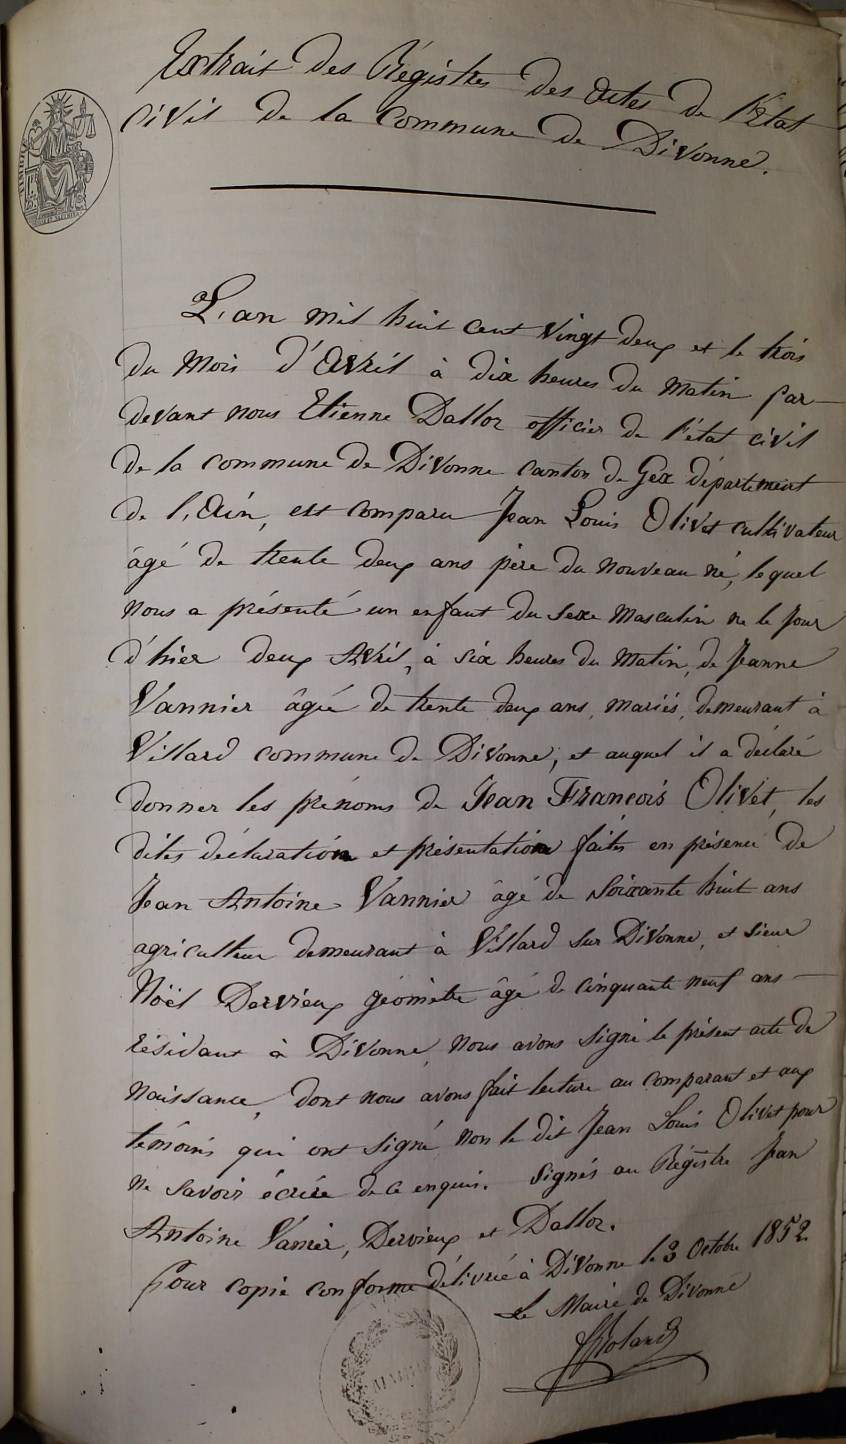 Extrait des Régistres des Actes de l'Etat
civil de la Commune de Divonne.
TIMBRE
L'an mil huit cent vingt deux et le trois
du mois d'Avril à dix heures du matin par-
devant nous Etienne Dalloz officier de l'état civil
de la commune de Divonne canton de Gex département
de l'Ain, est comparu Jean Louis Olivet cultivateur
âgé de trente deux ans père du nouveau né, lequel
nous a présenté un enfant du sexe masculin né le jour
d'hier deux Avril, à six heures du matin, de Jeanne
Vannier âgée de trente deux ans, mariés, demeurant à
Villard commune de Divonne, et auquel il a déclaré
donner les prénoms de Jean François Olivet, les
dites déclaration et présentation faites en présence de
Jean Antoine Vannier âgé de soixante huit ans
agriculteur demeurant à Villard sur Divonne, et sieur
Noël Dervieux géomètre âgé de cinquante neuf ans —
résidant à Divonne, nous avons signé le présent acte de
naissance, dont nous avons fait lecture au comparant et aux
témoins qui ont signé, non le dit Jean Louis Olivet pour
ne savoir écrire de ce enquis. Signés au Régistre Jean
Antoine Vanier, Dervieux et Dalloz.
Pour copie conforme délivrée à Divonne le 3 Octobre 1852.
Le Maire de Divonne
Roland